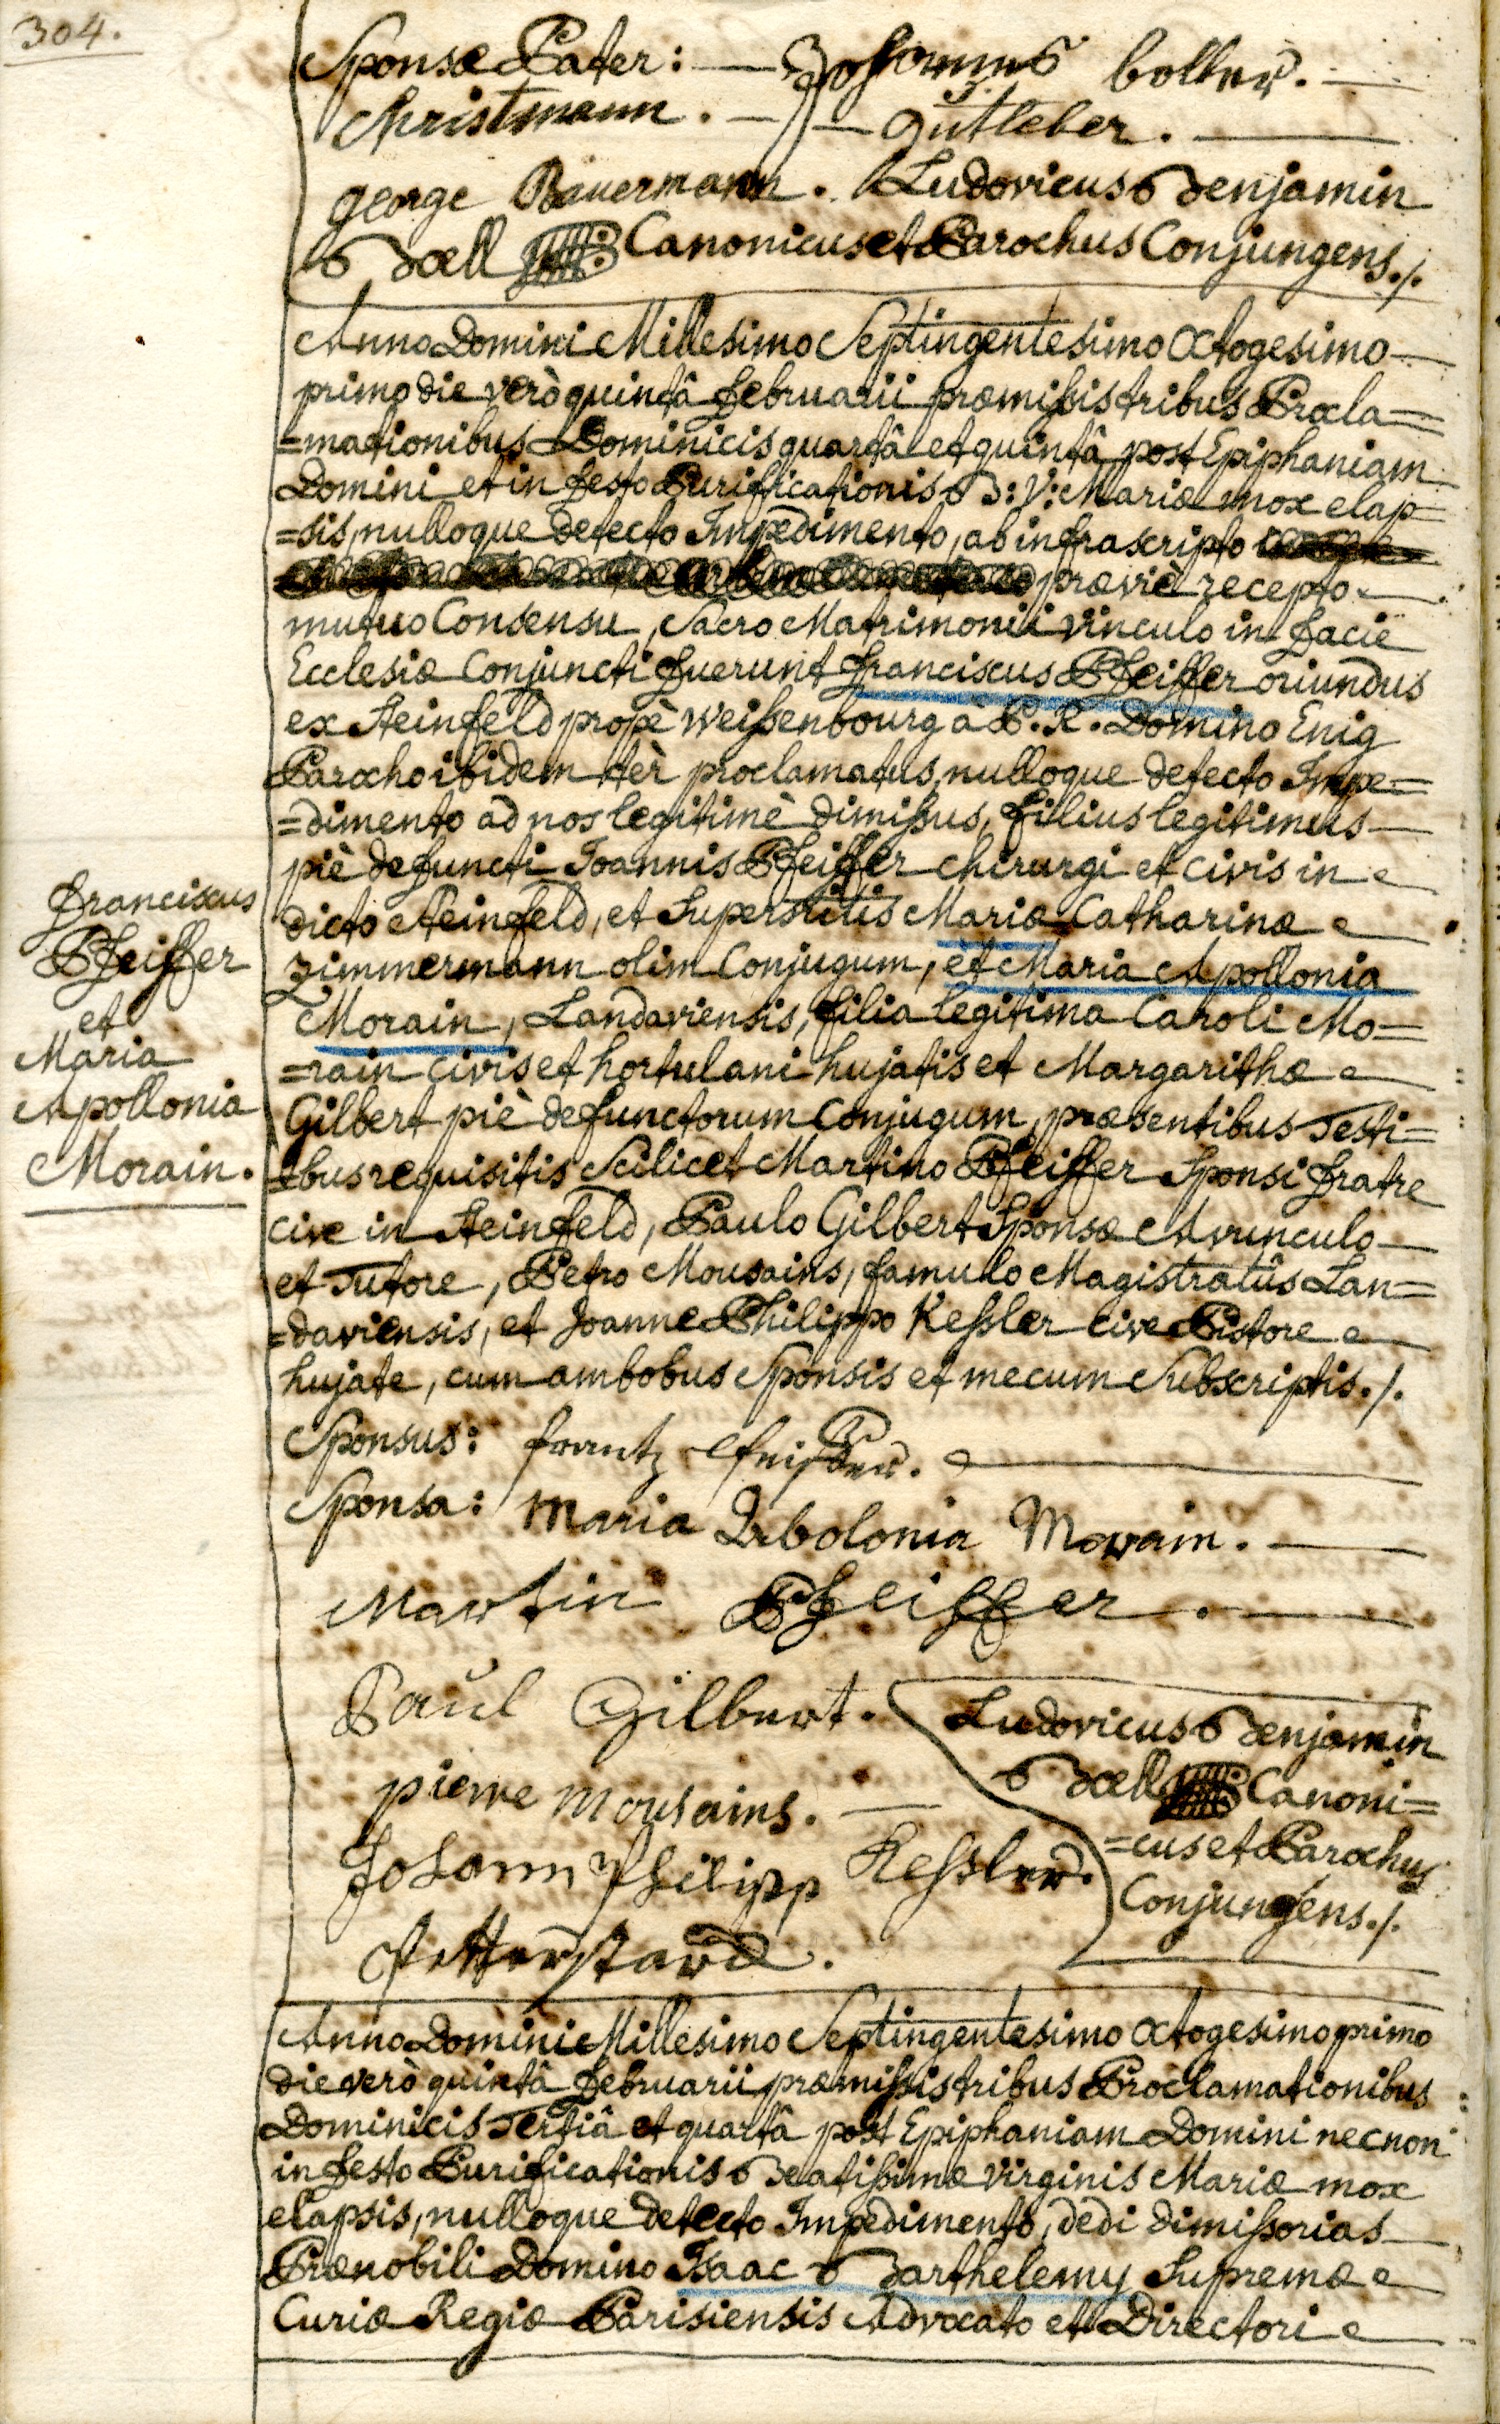 304.
Sponsæ Pater: — Johannes boller. —
Christmann. — J. gütleber. —
george Bauermann. Ludovicus Benjamin
Bœll Canonicus et Parochus Conjungens./.
Anno Domini Millesimo Septingentesimo Octogesimo
primo die verò quintâ februarii præmißis tribus Procla=
=mationibus Dominicis quartâ et quintâ post Epiphaniam
Domini et in festo Purificationis B: V: Mariæ mox elap=
=sis, nulloque detecto Impedimento, ab infrascripto
præviè recepto
mutuo Consensu, Sacro Matrimonii vinculo in facie
Ecclesiæ Conjuncti fuerunt franciscus Pfeiffer oriundus
ex Steinfeld propè weißenbourg à P. R. Domino Enig
Parocho ibidem tèr proclamatus, nulloque detecto Impe=
=dimento ad nos legitimè dimißus, filius legitimus
piè defuncti Joannis Pfeiffer chirurgi et civis in
dicto Steinfeld, et Superstitis Mariæ Catharinæ
zimmermann olim Conjugum, et Maria Apollonia
Morain, Landaviensis, filia legitima Caroli Mo=
=rain civis et hortulani hujatis et Margarithæ
Gilbert piè defunctorum Conjugum, præsentibus Testi=
=bus requisitis Scilicet Martino Pfeiffer Sponsi fratre
cive in Steinfeld, Paulo Gilbert Sponsæ Avunculo
et Tutore, Petro Mousains, famulo Magistratûs Lan=
=daviensis, et Joanne Philippo Keßler cive Pistore
hujate, cum ambobus Sponsis et mecum Subscriptis./.
franciscus
Pfeiffer
et
Maria
Apollonia
Morain.
Sponsus: frantz Pfeiffer.
Sponsa: Maria Abolonia Morain.
Martin Pfeiffer.
Paul Gilbert.
pierre mousains.
Johann Philipp Keßler.
Ludovicus Benjamin
Bœll Canoni=
=cus et Parochus
Conjungens./.
Anno Domini Millesimo Septingentesimo Octogesimo primo
die verò quintâ februarii præmißis tribus Proclamationibus
Dominicis Tertiâ et quartâ post Epiphaniam Domini necnon
in festo Purificationis Beatißimæ virginis Mariæ mox
elapsis, nulloque detecto Impedimento, dedi dimißorias
Prænobili Domino Isaac Barthelemy Supremæ
Curiæ Regiæ Parisiensis Advocato et Directori